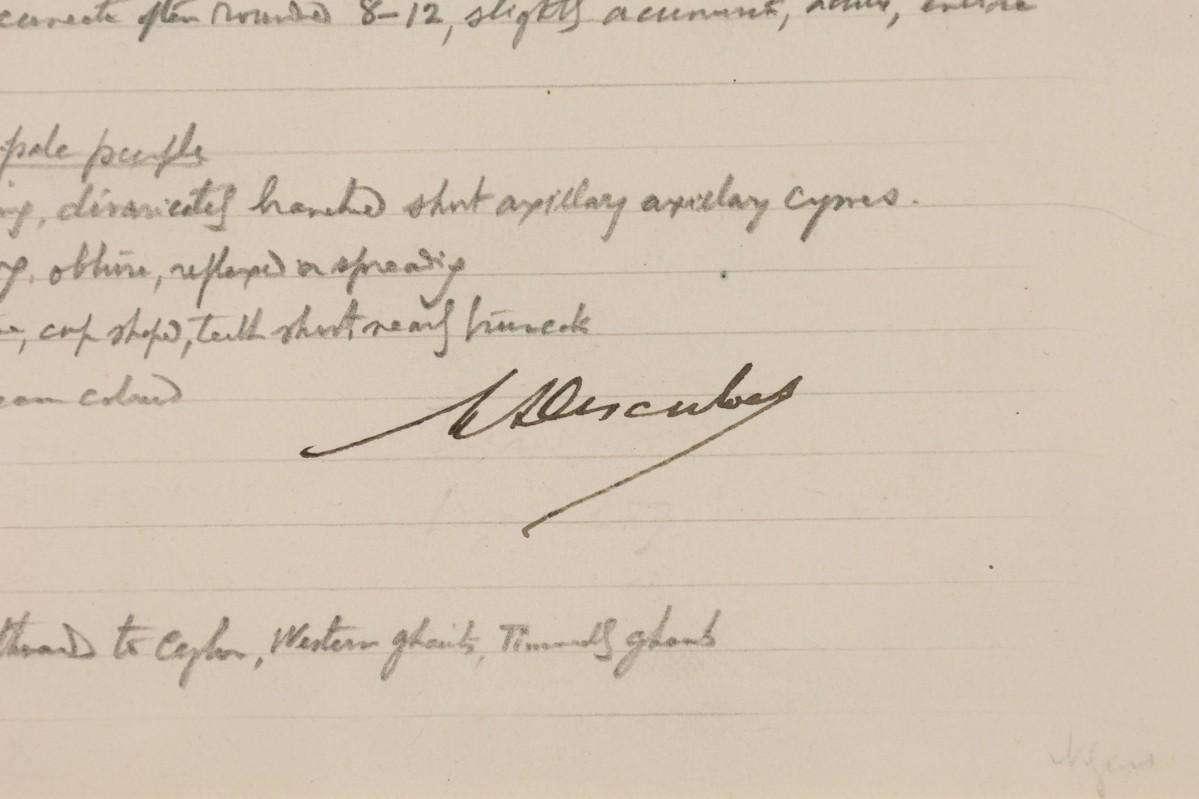 often rounded 8-12, slightly acuminate, acute, entire
pale purple
divaricately branched short axillary axillary cymes.
obtuse, reflexed or spreading
cup shaped, teeth short nearly truncate
coloured
to Ceylon, Western ghauts, ghauts